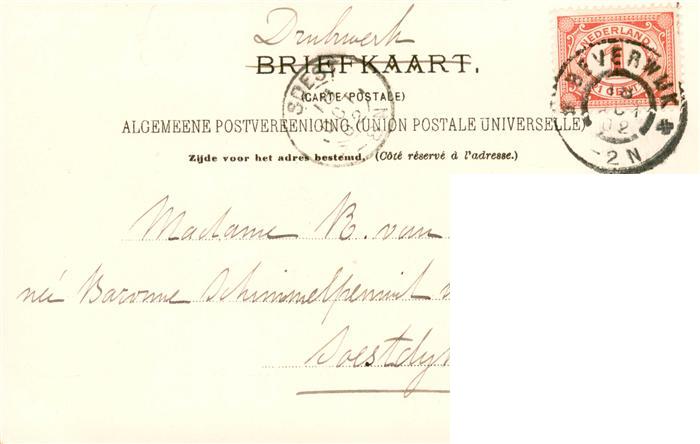 Drukwerk
BRIEFKAART.
(CARTE POSTALE)
ALGEMEENE POSTVEREENIGING (UNION POSTALE UNIVERSELLE)
Zijde voor het adres bestemd. (Côté réservé à l'adresse.)
NEDERLAND
1
1 CENT
BEVERWIJK
02
-2N
SOEST
Madame R. van
née Baronne Schimmelpennick
Soestdy